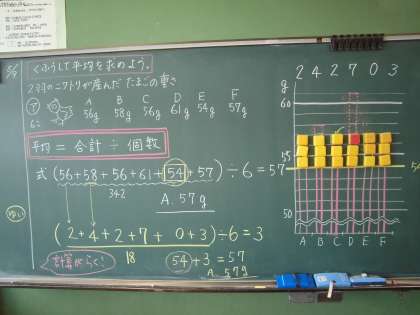 5/9
くふうして平均を求めよう。
2羽のニワトリが産んだたまごの重さ
A B C D E F
56g 58g 56g 61g 54g 57g
平均 = 合計 ÷ 個数
式 (56+58+56+61+54+57)÷6=57
342
A. 57g
(2+4+2+7+0+3)÷6=3
18
計算がらく!
54+3=57
A. 57g
2 4 2 7 0 3
g
60
55
54
50
A B C D E F